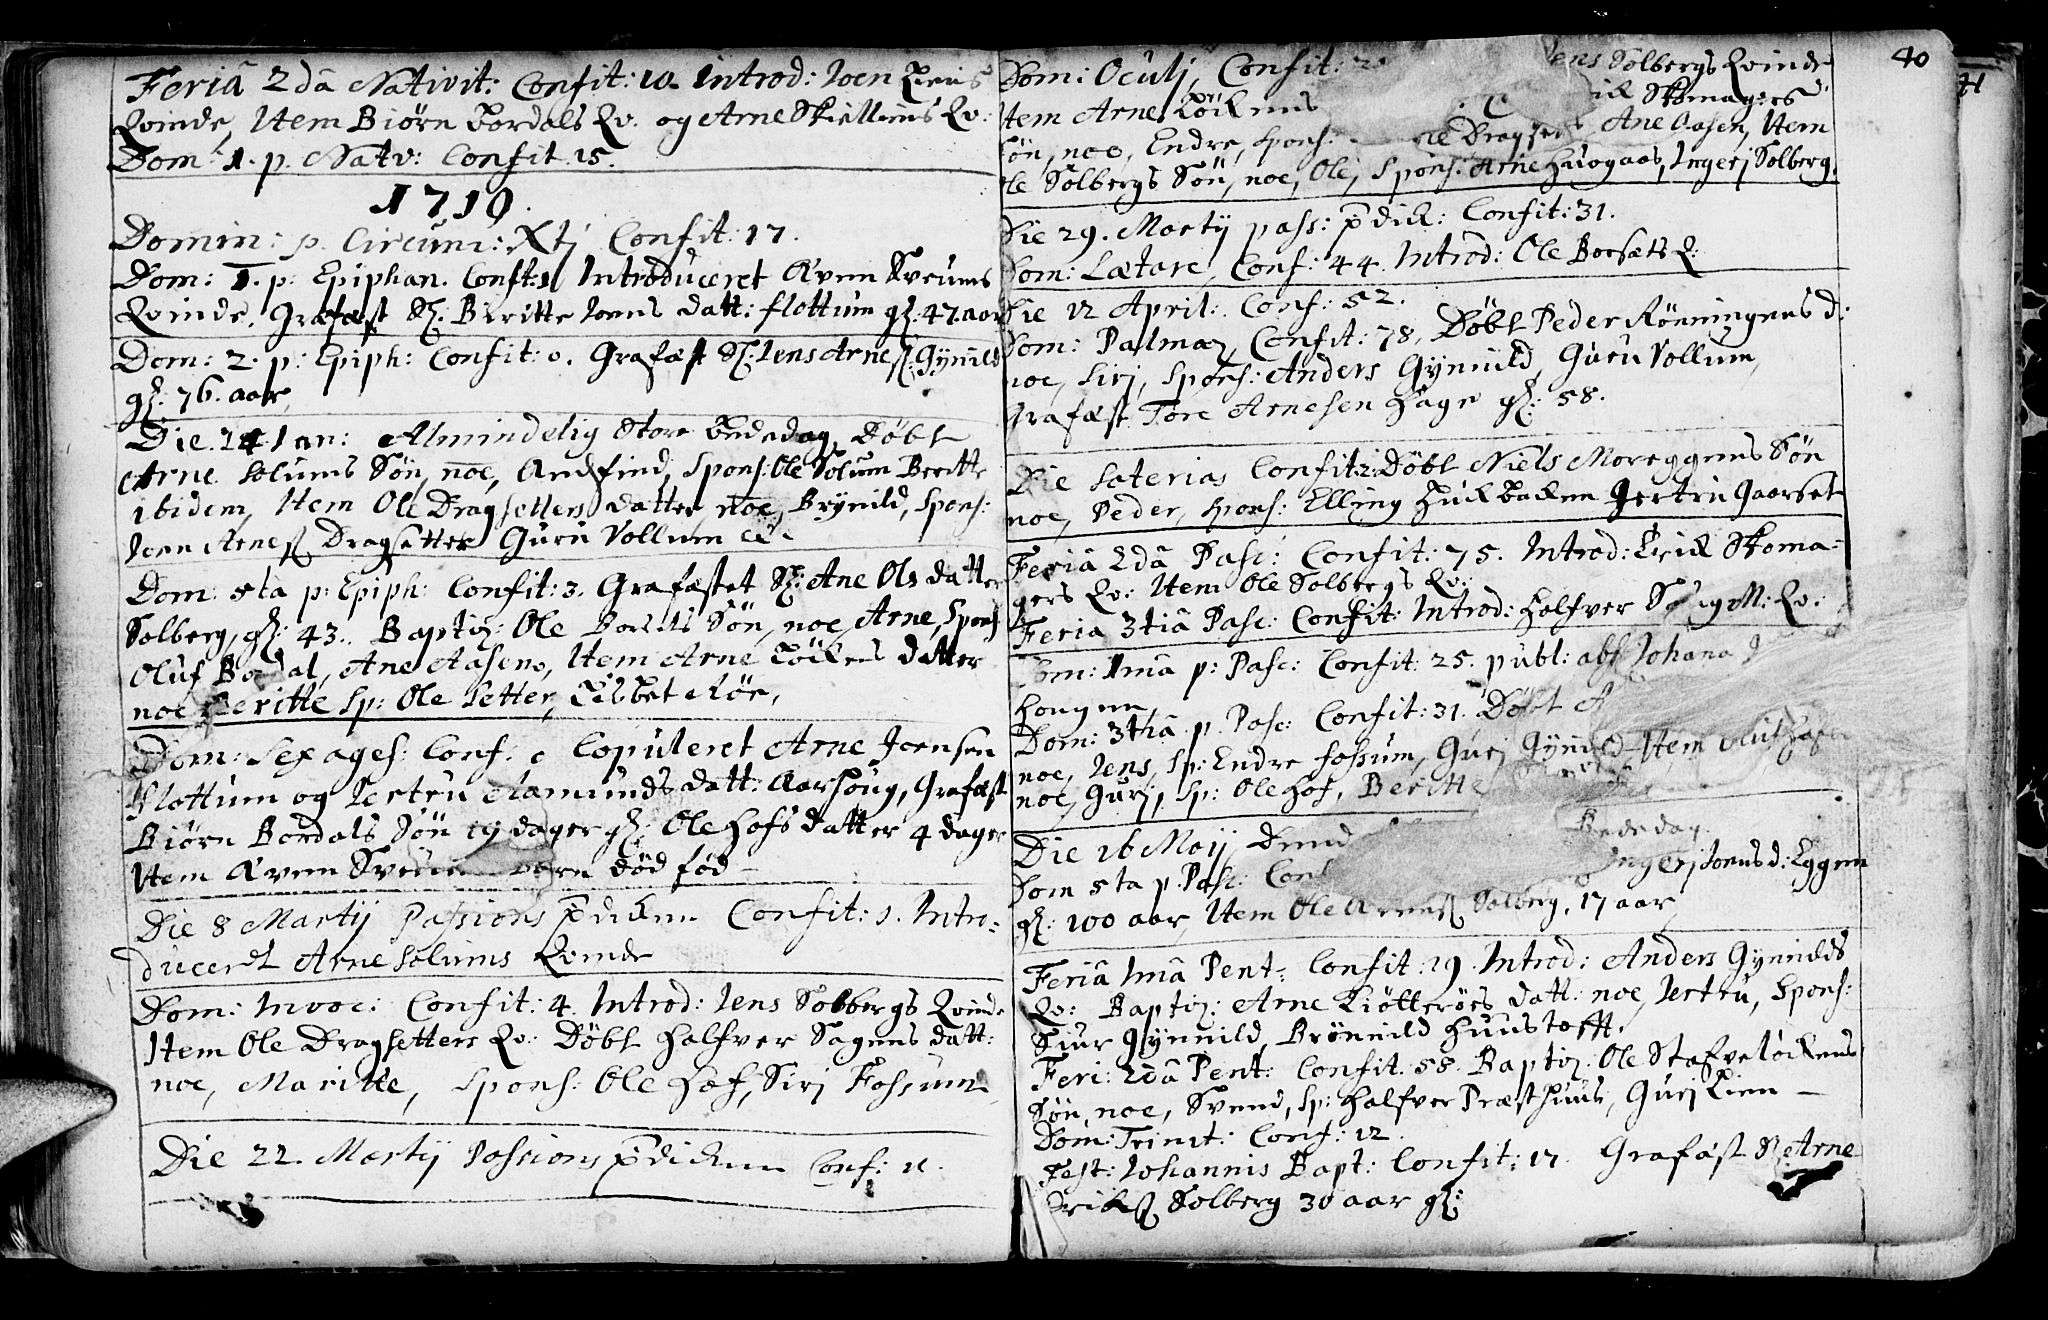 Feriâ 2dâ Nativit: Confit: 10. Introd: Joen Liens
Qvinde, Item Biørn Bordals Qv. og Arne Skiellins Qv:
Dom: 1. p. Natv: Confit. 15.
1719.
Domin: p. Circum: Xtj Confit: 17.
Dom: 1. p: Epiphan. Confit: 1. Introduceret Svenn Sveums
Qvinde. Grafæst Sl. Biritte Joens datt: flottum gl. 47. aar
Dom: 2. p: Epiph: Confit: 0. Grafæst Sl. Jens Arness: Gynild
gl: 76. aar,
Die. 14 Jan: Almindelig Store Bededag, Døbt
Arne Solums Søn, noe, Andfind, Spons: Ole Solum Beritte
ibidem, Item Ole Dragsetters datter, noe, Brynild, Spons:
Joen Arness Dragsætter Guru Vollum
Dom: 5ta p: Epiph: Confit: 3. Grafæstet Sl: Ane Ols datter
Solberg, gl: 43. Baptiz: Ole Borsets Søn, noe, Arne, Spons
Oluf Bordal, Ane Aasens, Item Arne Løkens datter
noe Beritte Sp: Ole Setter, Lisbet Røe,
Dom: Sexages: Conf: 0 Copuleret Arne Joensen
flottum og Jertru Aamunds datt: Aarhoug, Grafæst
Biørn Bordals Søn 19 dager gl: Ole Hofs datter 4 dager
Item Svenn Sveums barn død fød
Die 8 Martij Passions pdiken Confit: 1. Intro-
duceret Arne Solums Qvinde
Dom: Invoc: Confit: 4. Introd: Jens Solbergs Qvinde
Item Ole Dragsetters Qv: Døbt Halfver Sagens datt:
noe, Maritte, Spons: Ole Hof, Siri Fossum
Die 22. Martij Passions pdiken Conf: 11.
40
Dom: Oculj, Confit: 2 Jens Solbergs Qvinde
Item Arne Løkens Skomagers
Søn, noe, Endre, Spons: Ole Dragset, Ane Aasen, Item
Ole Solbergs Søn, noe, Ole, Spons: Arne Haugaas, Ingerj Solberg.
Die 29. Martij pass: pdik: Confit: 31.
Dom: Lætare, Conf: 44. Introd: Ole Borsæts Q:
Die 12 April: Conf: 52.
Dom: Palmaz, Confit: 78, Døbt Peder Rønningens d:
noe, Sirj, Spons: Anders Gynnild, Guru Vollum,
Grafæst Tore Arnesen Hage gl: 58.
Die Soterias Confit: 2: Døbt Niels Moreggens Søn
noe, Peder, Spons: Elling Hukbaken Jertru Gaarset
Feriâ 2dâ Pasc: Confit: 75. Introd: Erik Skoma-
gers Qv: Item Ole Solbergs Qv:
Feria 3tiâ Pasc: Confit: Introd: Halfver Sagen M: Qv:
Dom: 1mâ p: Pasc: Confit: 25. publ: abs Johana
Hougen,
Dom: 3tiâ p. Pasc: Confit: 31. Døbt A
noe, Jens, Sp: Endre fossum, Gurj Gynnild, Item
noe, Gurj, Sp: Ole Hof, Beritte
Die 26 Maij Bededag.
Dom 5ta p. Pasc: Con Ingerj Joensd: Eggen
gl: 100 aar, Item Ole Arness Solberg, 17 aar
Feriâ 1mâ Pent: Confit: 29. Introd: Anders Gynnilds
Qv: Baptiz: Arne Kiøtterøes datt: noe, Jertru, Spons:
Siur Gynnild, Brønnild Huustofft.
Feri: 2dâ Pent: Confit. 55. Baptiz. Ole Stafveløkens
Søn, noe, Svend, Sp: Halfver Præsthuus, Gurj Lien
Dom: Trinit: Conf: 12.
Fest: Johannis Bapt: Confit: 17. Grafæst Sl. Arne
Erikss Solberg 30 aar gl: